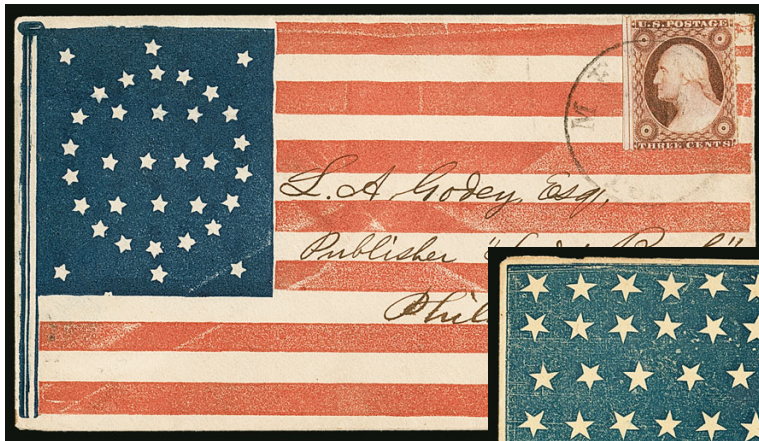 U.S. POSTAGE
THREE CENTS
L. A. Godey, Esq.
Publisher "
Phil